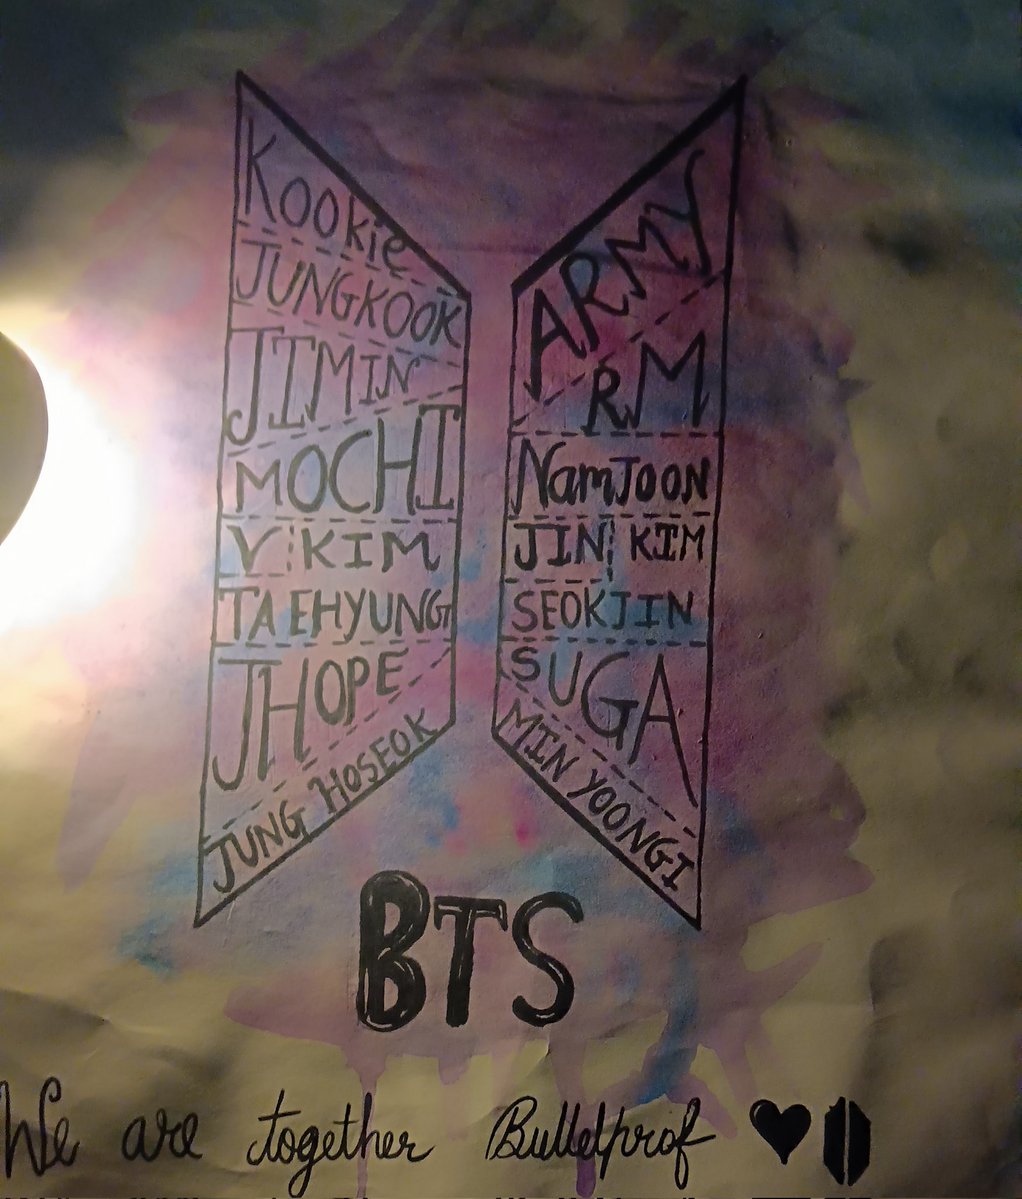 Kookie
JUNGKOOK
JIMIN
MOCHI
V KIM
TAEHYUNG
JHOPE
JUNG HOSEOK
ARMY
RM
NamJOON
JIN KIM
SEOKJIN
SUGA
MIN YOONGI
BTS
We are together Bulletprof